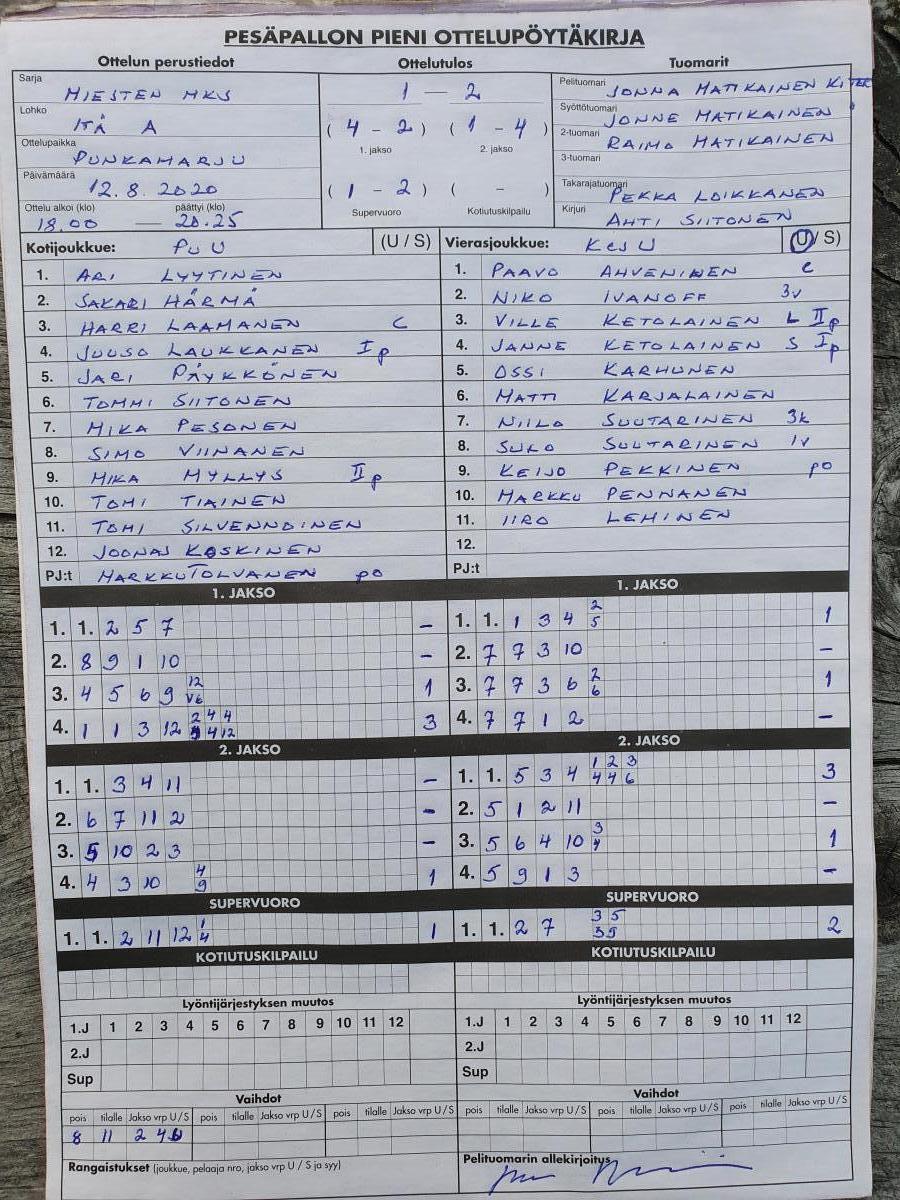 PESÄPALLON PIENI OTTELUPÖYTÄKIRJA
Ottelun perustiedot Ottelutulos Tuomarit
Sarja MIESTEN MKS
Lohko ITÄ A
Ottelupaikka PUNKAHARJU
Päivämäärä 12.8.2020
Ottelu alkoi (klo) päättyi (klo)
18.00 — 20.25
1 — 2
(4 - 2) (1 - 4)
1. jakso 2. jakso
(1 - 2) ( - )
Supervuoro Kotiutuskilpailu
Pelituomari JONNA MATIKAINEN
Syöttötuomari JONNE MATIKAINEN
2-tuomari RAIMO MATIKAINEN
3-tuomari
Takarajatuomari PEKKA LOIKKANEN
Kirjuri AHTI SIITONEN
Kotijoukkue: PuU (U / S) Vierasjoukkue: KesU (U / S)
1. ARI LYYTINEN
2. SAKARI HÄRMÄ
3. HARRI LAAMANEN C
4. JUUSO LAUKKANEN I p
5. JARI PÄYKKÖNEN
6. TOMMI SIITONEN
7. MIKA PESONEN
8. SIMO VIINANEN
9. MIKA MYLLYS II p
10. TOMI TIAINEN
11. TOMI SILVENNOINEN
12. JOONAS KOSKINEN
PJ:t MARKKU TOLVANEN po
1. PAAVO AHVENINEN c
2. NIKO IVANOFF 3v
3. VILLE KETOLAINEN L II p
4. JANNE KETOLAINEN S I p
5. OSSI KARHUNEN
6. MATTI KARJALAINEN
7. NIILO SUUTARINEN 3k
8. SULO SUUTARINEN 1v
9. KEIJO PEKKINEN po
10. MARKKU PENNANEN
11. IIRO LEHINEN
12.
PJ:t
1. JAKSO
1. 1. 2 5 7 –
2. 8 9 1 10 –
3. 4 5 6 9 12 V6 1
4. 1 1 3 12 2 4 4 4 12 3
1. JAKSO
1. 1. 1 3 4 2 5 1
2. 7 7 3 10 –
3. 7 7 3 6 2 6 1
4. 7 7 1 2 –
2. JAKSO
1. 1. 3 4 11 –
2. 6 7 11 2 –
3. 5 10 2 3 –
4. 4 3 10 4 9 1
2. JAKSO
1. 1. 5 3 4 1 2 3 4 4 6 3
2. 5 1 2 11 –
3. 5 6 4 10 3 1
4. 5 9 1 3 –
SUPERVUORO
1. 1. 2 11 12 1 4 1
SUPERVUORO
1. 1. 2 7 3 5 3 5 2
KOTIUTUSKILPAILU KOTIUTUSKILPAILU
Lyöntijärjestyksen muutos Lyöntijärjestyksen muutos
1.J 1 2 3 4 5 6 7 8 9 10 11 12
2.J
Sup
1.J 1 2 3 4 5 6 7 8 9 10 11 12
2.J
Sup
Vaihdot Vaihdot
pois tilalle Jakso vrp U / S pois tilalle Jakso vrp U / S pois tilalle Jakso vrp U / S
8 11 2 4
pois tilalle Jakso vrp U / S pois tilalle Jakso vrp U / S pois tilalle Jakso vrp U / S
Rangaistukset (joukkue, pelaaja nro, jakso vrp U / S ja syy)
Pelituomarin allekirjoitus